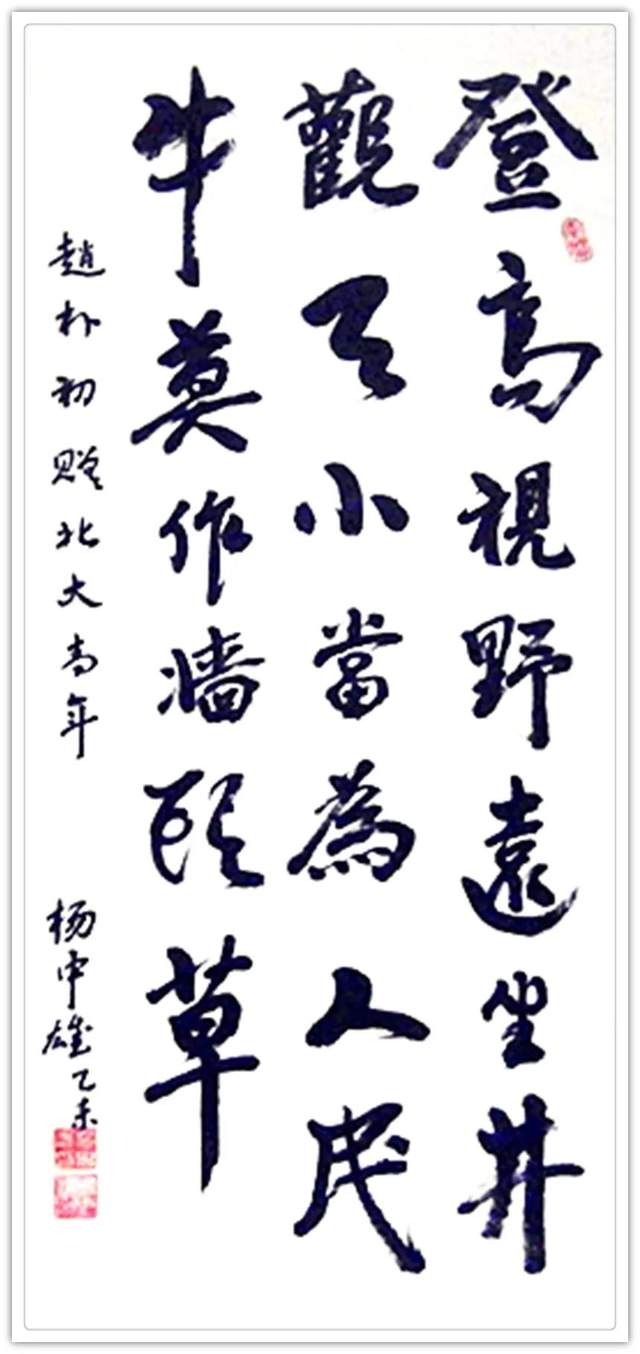 登高視野遠坐井
觀天小當為人民
牛莫作墙頭草
趙朴初贈北大青年
杨中雄乙未